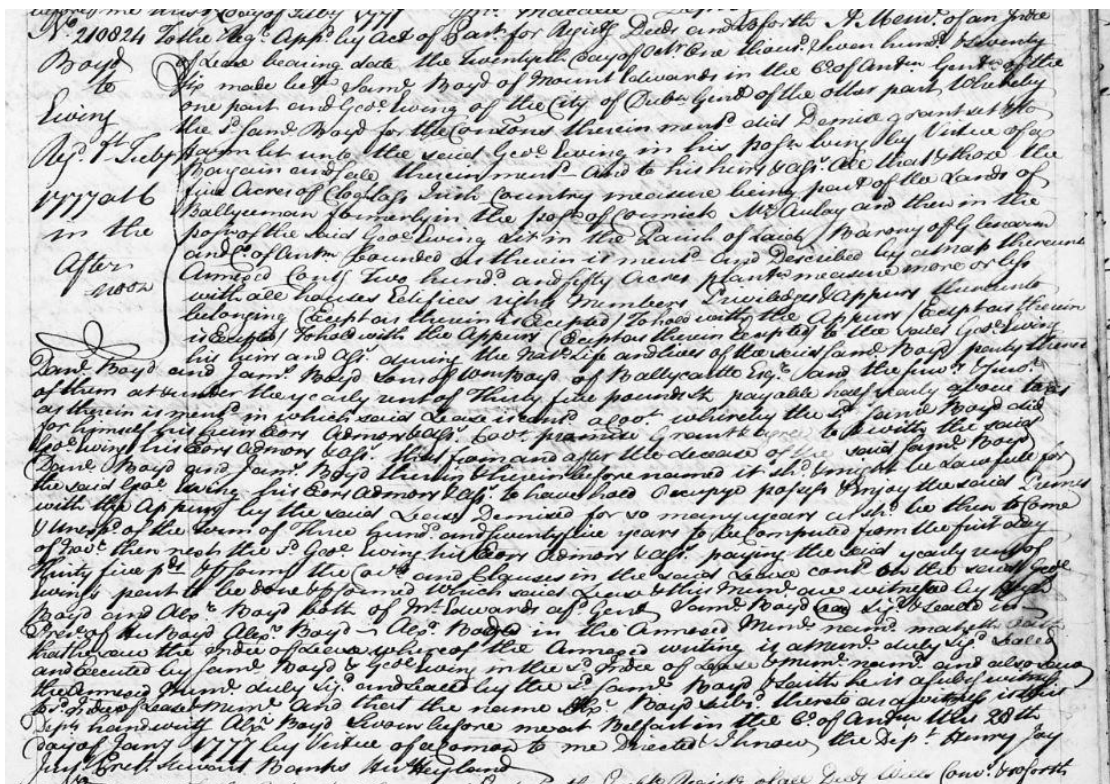 before me this Day of Feby 1777
No. 210824 To the Regr. Appd. by Act of Part. for Registg Deeds and so forth A Meml. of an Indre
Boyd of Lease bearing date the Twentyeth Day of Octr. One thousd. Seven hundd. & Seventy
to Six made betn. Saml. Boyd of Mount Edwards in the Co. of Antrm Gentn of the
Ewing one part and Geoe. Ewing of the City of Dubn Gentn of the other part Whereby
the sd. Saml. Boyd for the Consons therein mentd. did Demise grant sett &to
Regd. 1st Feby farm let unto the said Geoe. Ewing in his possn being by Virtue of a
1777 at 6 Bargain and Sale therein mentd. And to his heirs & asss. All that & those the
in the five Acres of Clog Irish Country measure being part of the Lands of
After Ballyeeman formerly in the possn. of Cormick Mc.Aulay and then in the
noon possn of the said Geoe. Ewing Sit. in the Parish of Laid Barony of Glencarn
and Co. of Antrm bounded as therein is mentd. and Described by a map thereunto
Annexed Contg Two hundd. and fifty Acres plantn measure more or less
with all houses Edifices rights Members Priviledges & Appurs thereunto
belonging (Except as therein is Excepted) To hold with the Appurs (Except as therein
is Excepted) To hold with the Appurs (Except as therein Excepted) to the said Geoe. Ewing
his heirs and asss. during the Natl. Life and lives of the said Saml. Boyd party thereto
Danl. Boyd and Jams. Boyd Sons of Wm Boyd of Ballycastle Esqr. and the survr. & survs.
of them at & under the yearly rent of Thirty five pounds payable half yearly above taxes
as therein is mentd. in which said Lease is contd. a Covt. whereby the sd. Saml. Boyd did
for himself his heirs Exors Admors & asss. Covt. promise Grant & agree to & with the said
Geoe. Ewing his Exors Admors & asss. that from and after the decease of the said Saml. Boyd
Danl. Boyd and Jams. Boyd therein & hereinbefore named it shd. & might be Lawfull for
the said Geoe. Ewing his Exors Admors & asss. to have hold Occupy possess & Enjoy the said Premes
with the Appurs by the said Lease Demised for so many years as shd. be then to Come
& Unexpd. of the term of Three hundd. and twenty five years to be Computed from the first day
of Novr. then next the sd. Geoe. Ewing his Exors Admors & asss. paying the said yearly rent of
Thirty five pds. & pforming the Covts. and Clauses in the said Lease contd. on the said Geoe.
Ewings part to be done & pformed Which said Lease & this Meml. are witnessed by Hugh
Boyd and Alexr. Boyd both of Mt. Edwards afsd. Gent Saml. Boyd Signd. & Sealed in
Presce. of Hu Boyd Alexr. Boyd Alexr. Boyd in the Annexed Meml. named maketh Oath
that he saw the Indre of Lease whereof the Annexed writing is a Meml. duly Signd. Sealed
and Executed by Saml. Boyd & Geoe. Ewing in the sd. Indre of Lease & Meml. named and also saw
the Annexed Meml. duly Signd. and Sealed by the sd. Saml. Boyd & saith he is a subsg witness
to sd. Indre of Lease & Meml. and that the name Alexr. Boyd subd. thereto as a witness is this
Depts. handwritg Alexr. Boyd Sworn before me at Belfast in the Co. of Antrm this 28th
day of Jany 1777 by Virtue of a Comon to me Directed I know the Dept. Henry Joy
Junr. Stewart Banks